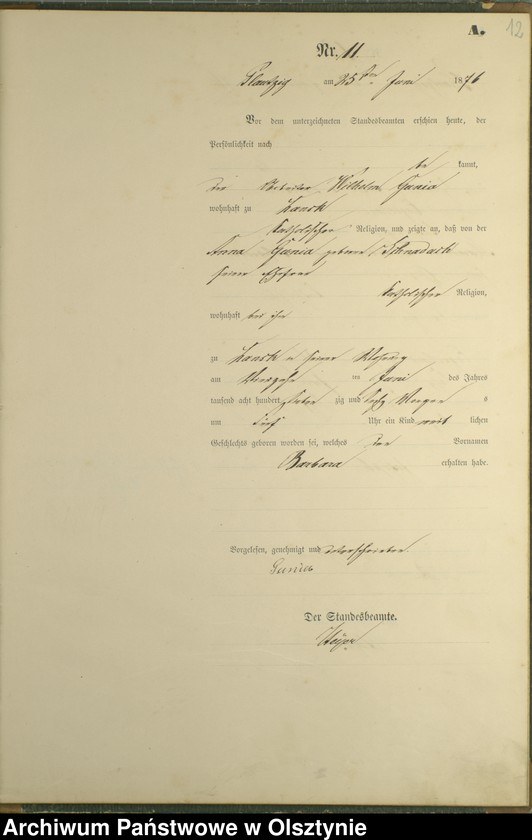 A. 12
Nr. 11.
am 25ten Juni 1876
Vor dem unterzeichneten Standesbeamten erschien heute, der
Persönlichkeit nach
be kannt,
der Wilhelm Gunia
wohnhaft zu Lansk
katholischer Religion, und zeigte an, daß von der
Anna Gunia geborene
seiner Ehefrau
katholischer Religion,
wohnhaft bei ihm
zu Lansk in seiner Wohnung
am ten Juni des Jahres
tausend acht hundert sieben zig und sechs Morgens
um fünf Uhr ein Kind weib lichen
Geschlechts geboren worden sei, welches den Vornamen
Barbara erhalten habe.
Vorgelesen, genehmigt und unterschrieben.
Gunia
Der Standesbeamte.
Archiwum Państwowe w Olsztynie